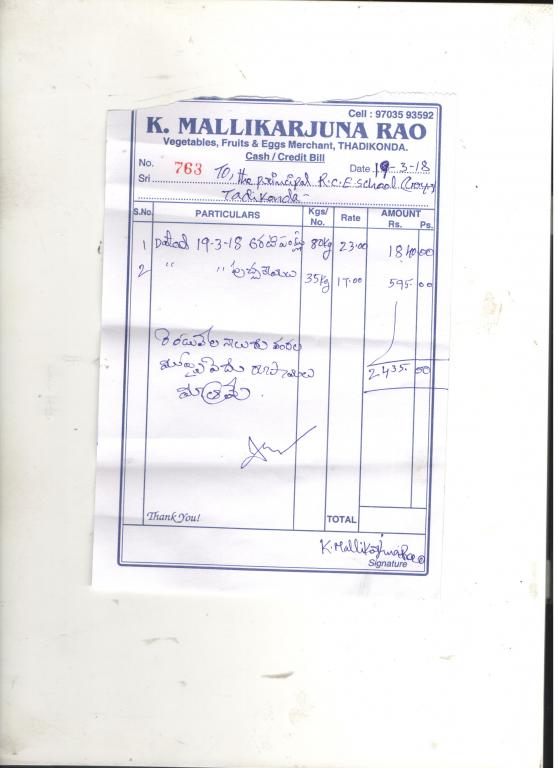 Cell : 97035 93592
K. MALLIKARJUNA RAO
Vegetables, Fruits & Eggs Merchant, THADIKONDA.
Cash / Credit Bill
No. 763 Date 19-3-18
Sri To, the principal R.C.E School
Tadikonda-
S.No. PARTICULARS Kgs/ No. Rate AMOUNT Rs. Ps.
1 Dated 19-3-18 80kg 23.00 1840.00
2 " " పుచ్చకాయలు 35kg 17.00 595.00
రెండువేల నాలుగు వందల
ముప్పై ఐదు రూపాయలు 2435.00
మాత్రమే
Thank You! TOTAL
K. Mallikarjuna Rao
Signature